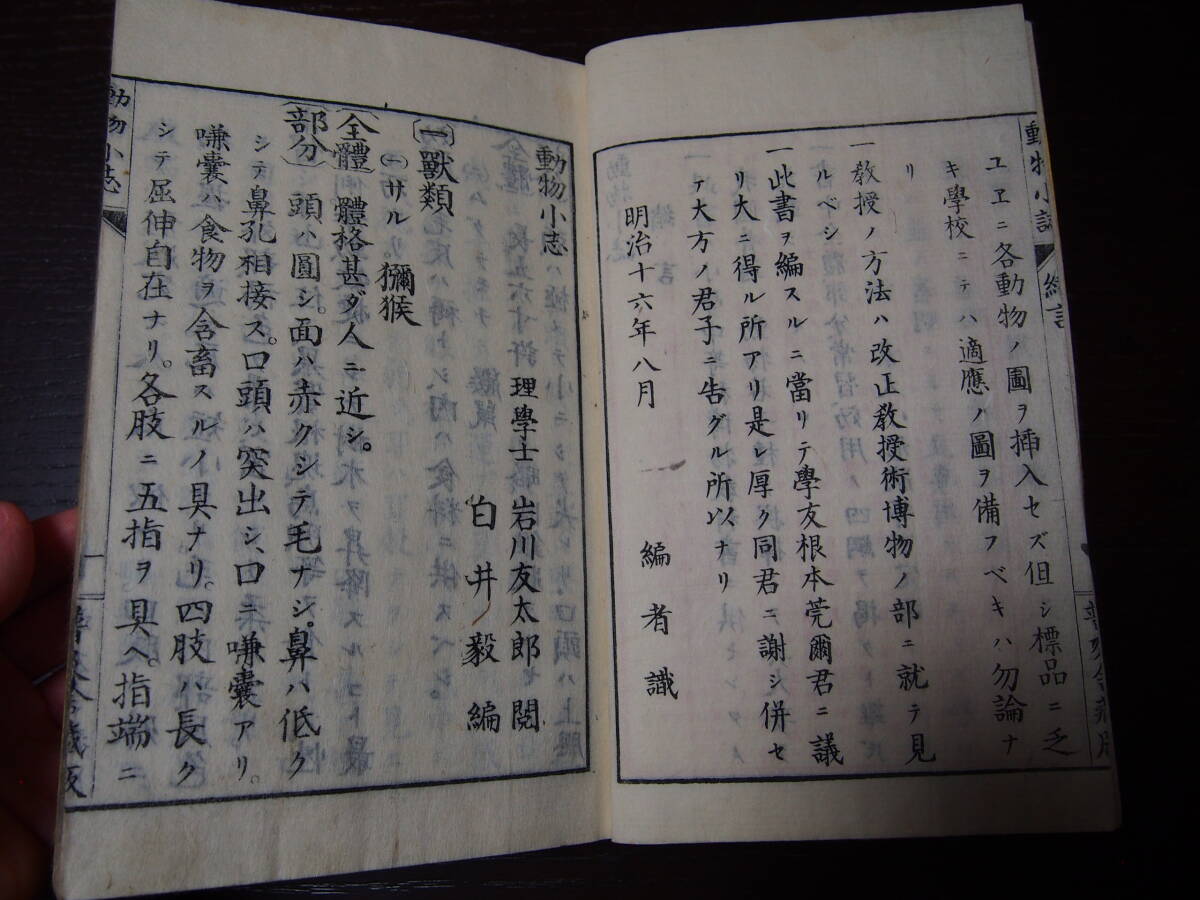 動物小誌 緒言
ユヱニ各動物ノ圖ヲ挿入セズ但シ標品ニ乏
キ學校ニテハ適應ノ圖ヲ備フベキハ勿論ナ
リ
一教授ノ方法ハ改正教授術博物ノ部ニ就テ見
ルベシ
一此書ヲ編スルニ當リテ學友根本莞爾君ニ議
リ大ニ得ル所アリ是レ厚ク同君ニ謝シ併セ
テ大方ノ君子ニ告グル所以ナリ
明治十六年八月 編者識
動物小志
理學士 岩川友太郎 閱
白井毅 編
(一)獸類
(一)サル 獼猴
(全體)體格甚ダ人ニ近シ。
(部分)頭ハ圓シ。面ハ赤クシテ毛ナシ。鼻ハ低ク
シテ鼻孔相接ス。口頭ハ突出シ、口ニ嗛囊アリ。
嗛囊ハ食物ヲ含畜スルノ具ナリ。四肢ハ長ク
シテ屈伸自在ナリ。各肢ニ五指ヲ具ヘ。指端ニ
動物小志 一